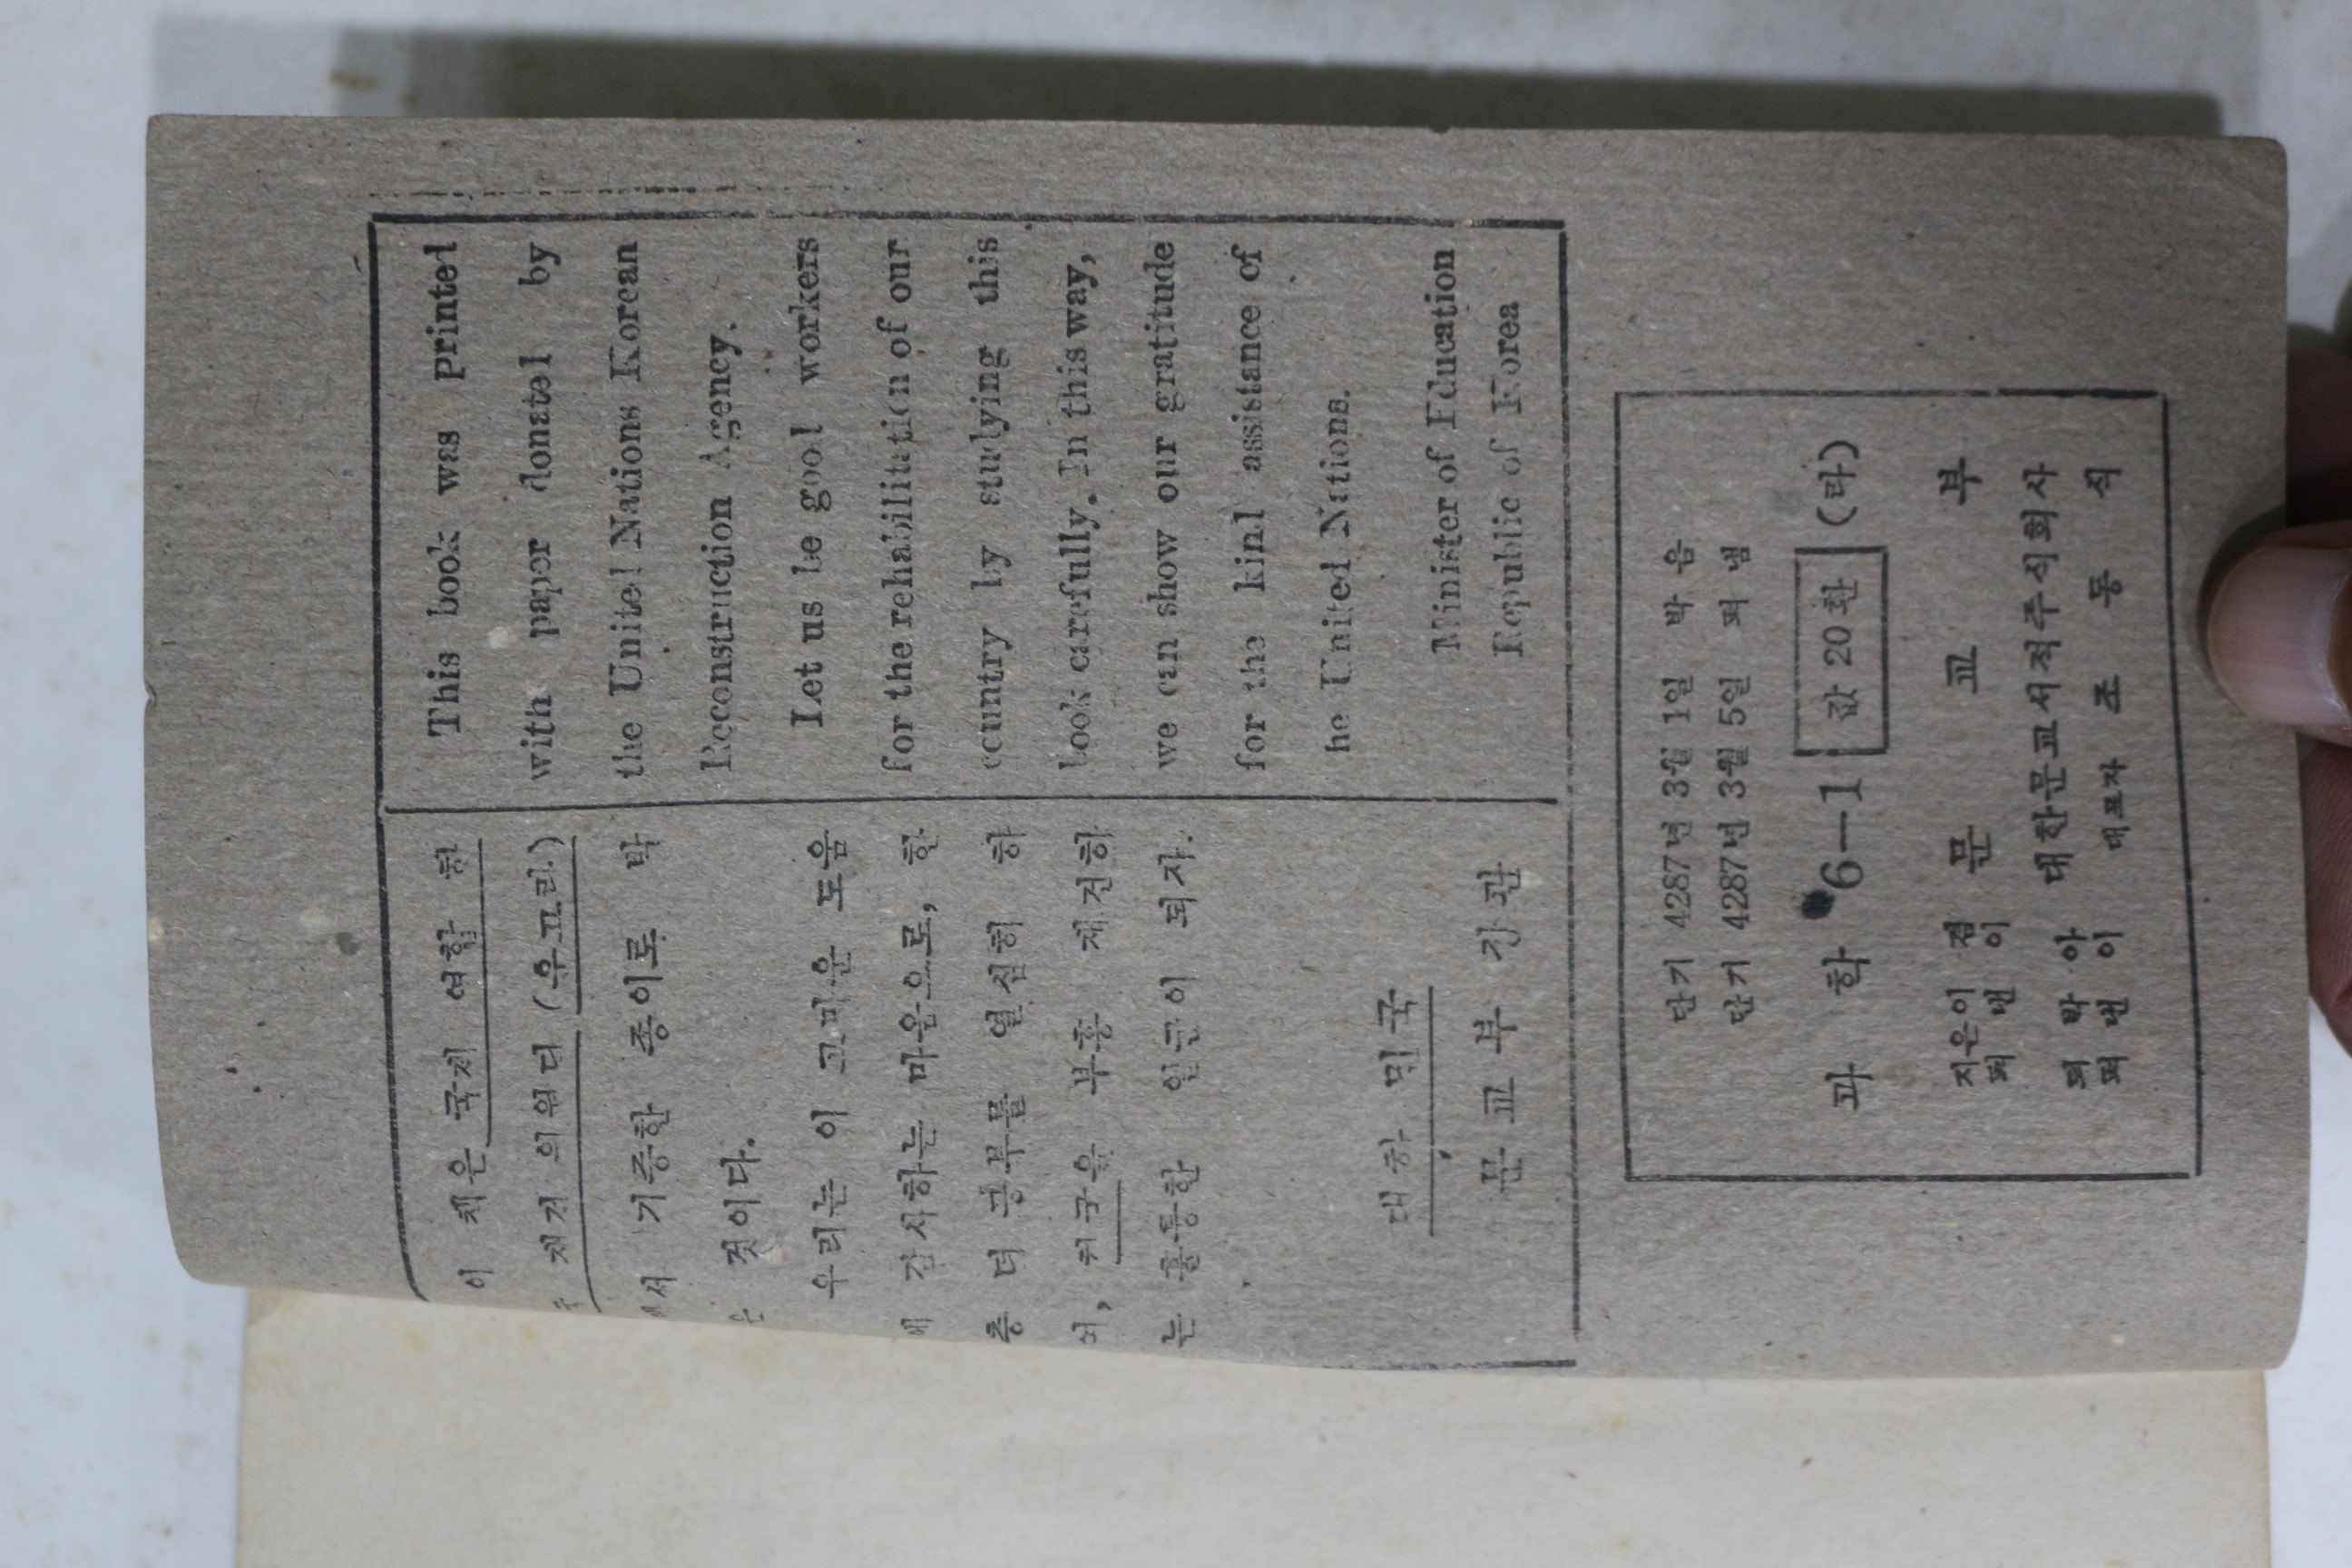 이 책은 국제 연합 한
국 재건 위원단 (운끄라)
에서 기증한 종이로 박
은 것이다.
우리는 이 고마운 도움
에 감사하는 마음으로, 한
층 더 공부를 열심히 하
여, 한국을 부흥 재건하
는 훌륭한 일군이 되자.
대한 민국
문교부 장관
This book was printed
with paper donated by
the United Nations Korean
Reconstruction Agency.
Let us be good workers
for the rehabilitation of our
country by studying this
book carefully. In this way,
we can show our gratitude
for the kind assistance of
he United Nations.
Minister of Education
Republic of Korea
단기 4287년 3월 1일 박음
단기 4287년 3월 5일 펴냄
과 학 6—1 값 20환 (라)
지은이 겸 펴낸이 문 교 부
박아 펴낸이 대한문교서적주식회사
대표자 조 동 식